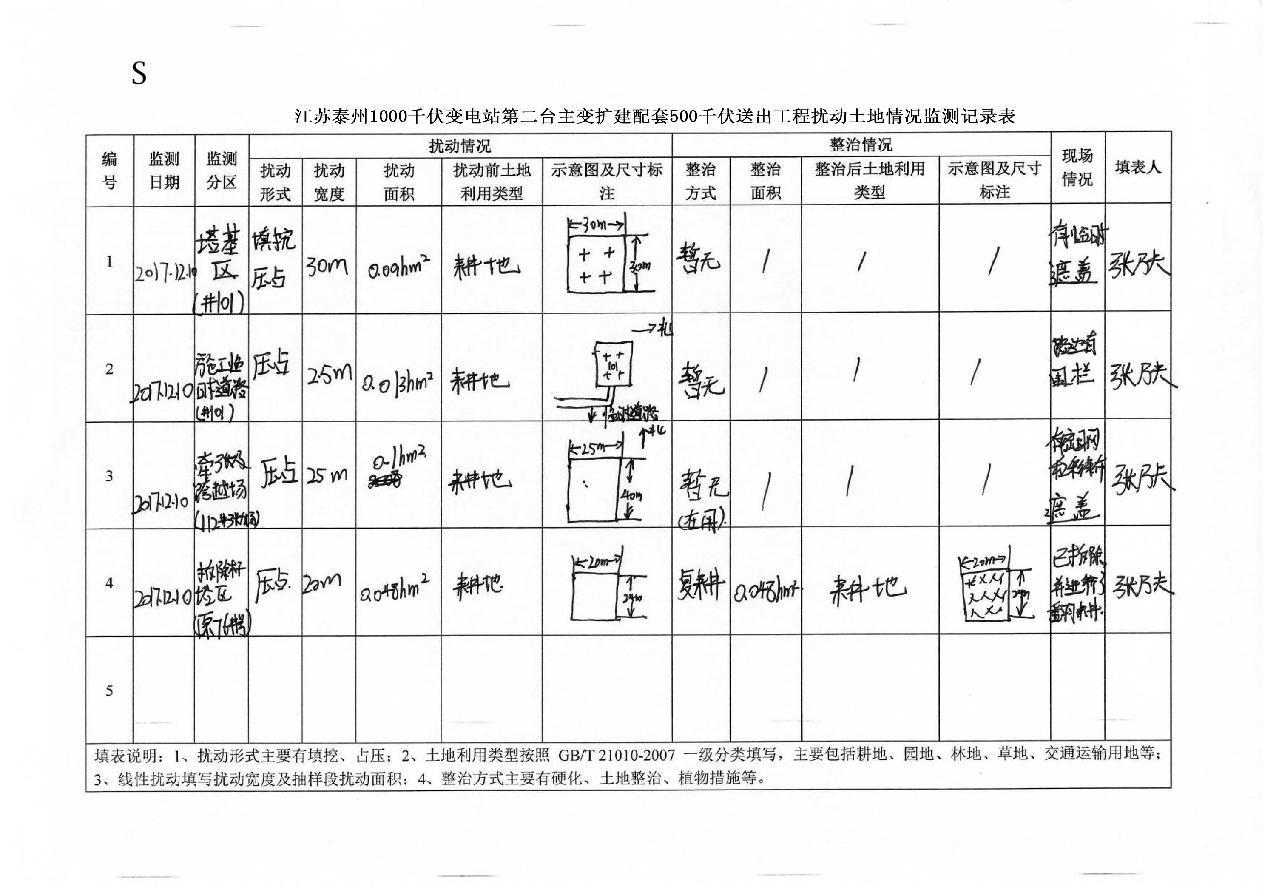 S
江苏泰州1000千伏变电站第二台主变扩建配套500千伏送出工程扰动土地情况监测记录表
编号 监测日期 监测分区 扰动情况 整治情况 现场情况 填表人
扰动形式 扰动宽度 扰动面积 扰动前土地利用类型 示意图及尺寸标注 整治方式 整治面积 整治后土地利用类型 示意图及尺寸标注
1 2017.12.10 塔基区(#101) 填挖压占 30m 0.09hm² 耕地 30m 30m 暂无 / / / 有临时遮盖 张乃夫
2 2017.12.10 施工临时道路(#101) 压占 2.5m 0.013hm² 耕地 北 101 临时道路 暂无 / / / 围栏 张乃夫
3 2017.12.10 牵张及跨越场 压占 25m 0.1hm² 耕地 北 25m 40m 暂无(在用) / / / 遮盖 张乃夫
4 2017.12.10 拆除杆塔区(原76#塔) 压占 20m 0.048hm² 耕地 20m 24m 复耕 0.048hm² 耕地 20m 24m 已拆除并进行了 张乃夫
5
填表说明：1、扰动形式主要有填挖、占压；2、土地利用类型按照 GB/T 21010-2007 一级分类填写，主要包括耕地、园地、林地、草地、交通运输用地等；
3、线性扰动填写扰动宽度及抽样段扰动面积；4、整治方式主要有硬化、土地整治、植物措施等。